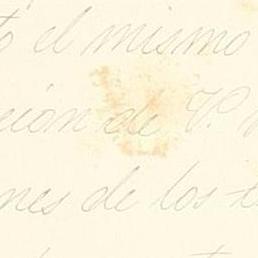 el mismo
ción de V.
nes de los